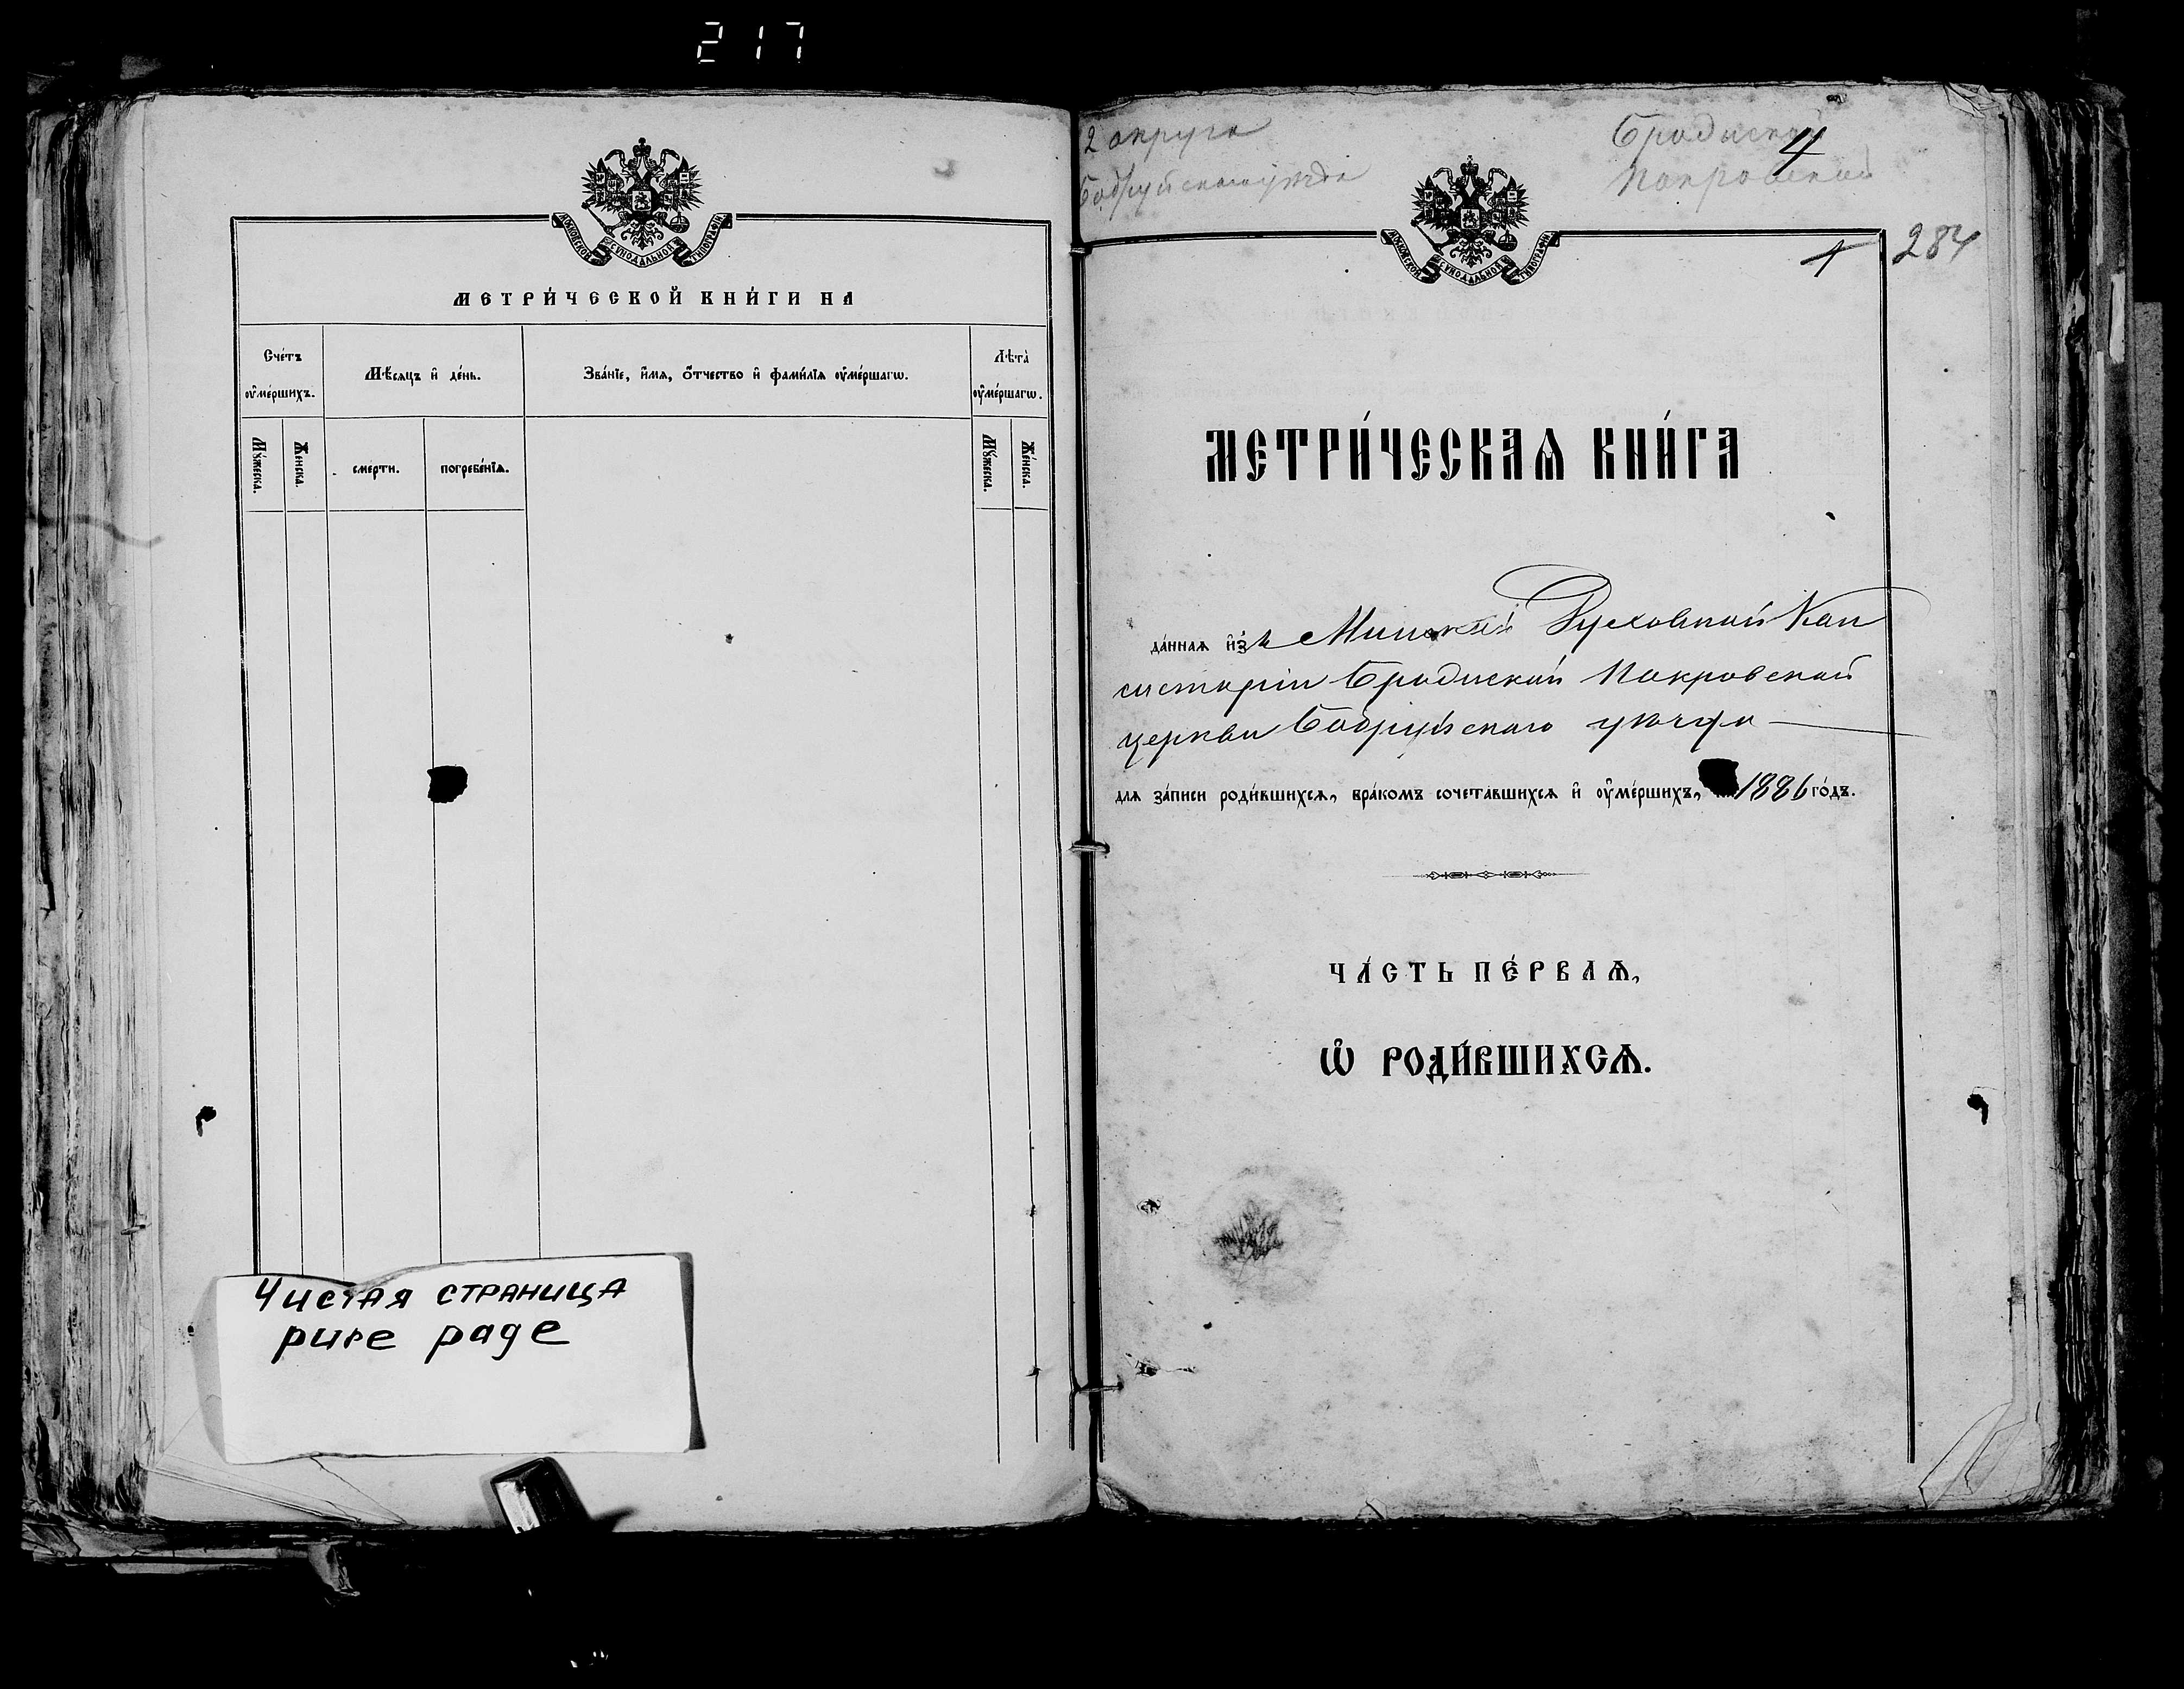 217
МОСКОВСКОЙ СѴНОДАЛЬНОЙ ТИПОГРАФІИ
МЕТРИ́ЧЕСКОЙ КНИ́ГИ НА
Сче́тъ ᲂу҆ме́ршихъ.
Мѣ́сяцъ и҆ де́нь.
Зва́нїе, и҆́мѧ, ѻ҆́тчество и҆ фами́лїѧ ᲂу҆ме́ршагѡ.
Лѣ́та ᲂу҆ме́ршагѡ.
Мꙋ́жеска.
Же́нска.
сме́рти.
погребе́нїѧ.
Мꙋ́жеска.
Же́нска.
Чистая страница
pure page
2 округа
Бобруйскаго уѣзда
Бродиской
Покровской
4
МОСКОВСКОЙ СѴНОДАЛЬНОЙ ТИПОГРАФІИ
1
284
МЕТРИ́ЧЕСКАѦ КНИ́ГА
да́ннаѧ и҆зъ Минской Духовной Кон
систоріи Бродиской Покровской
церкви Бобруйскаго уѣзда
для за́писи роди́вшихсѧ, бра́комъ сочета́вшихсѧ и҆ ᲂу҆ме́ршихъ, 1886 го́дъ.
ЧА́СТЬ ПЕ́РВАѦ,
Ѡ҆ РОДИ́ВШИХСѦ.